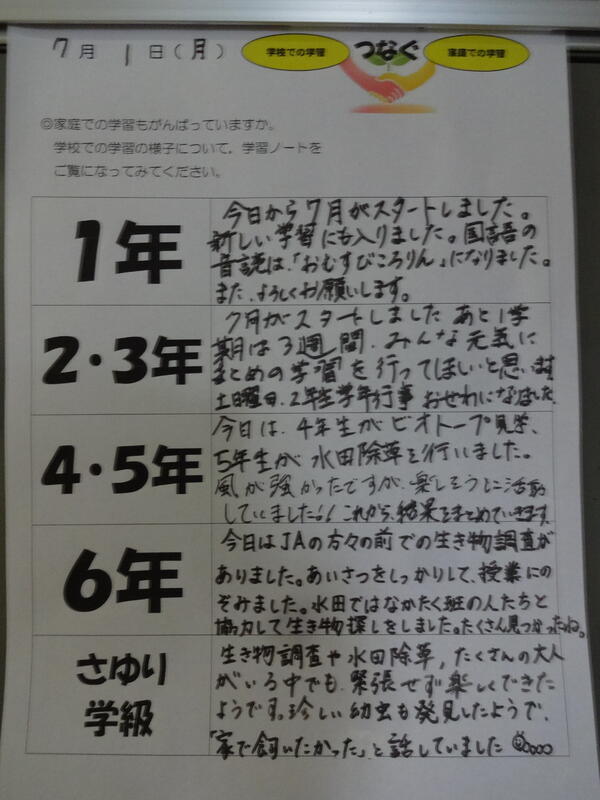 7月 1日(月)
学校での学習 つなぐ 家庭での学習
◎家庭での学習もがんばっていますか。
学校での学習の様子について，学習ノートを
ご覧になってみてください。
1年
今日から7月がスタートしました。
新しい学習にも入りました。国語の
音読は、「おむすびころりん」になりました。
また、よろしくお願いします。
2・3年
7月がスタートしました あと1学
期は3週間、みんな元気に
まとめの学習を行ってほしいと思います
土曜日、2年生学年行事 おせわになりました
4・5年
今日は、4年生がビオトープ見学、
5年生が水田除草を行いました。
風が強かったですが、楽しそうに活動
していました!! これから、結果をまとめていきます
6年
今日はJAの方々の前での生き物調査が
ありました。あいさつをしっかりして、授業にの
ぞみました。水田ではなかたく班の人たちと
協力して生き物探しをしました。たくさん見つかったね。
さゆり
学級
生き物調査や水田除草，たくさんの大人
がいる中でも、緊張せず楽しくできた
ようです。珍しい幼虫も発見したようで、
「家で飼いたかった」と話していました